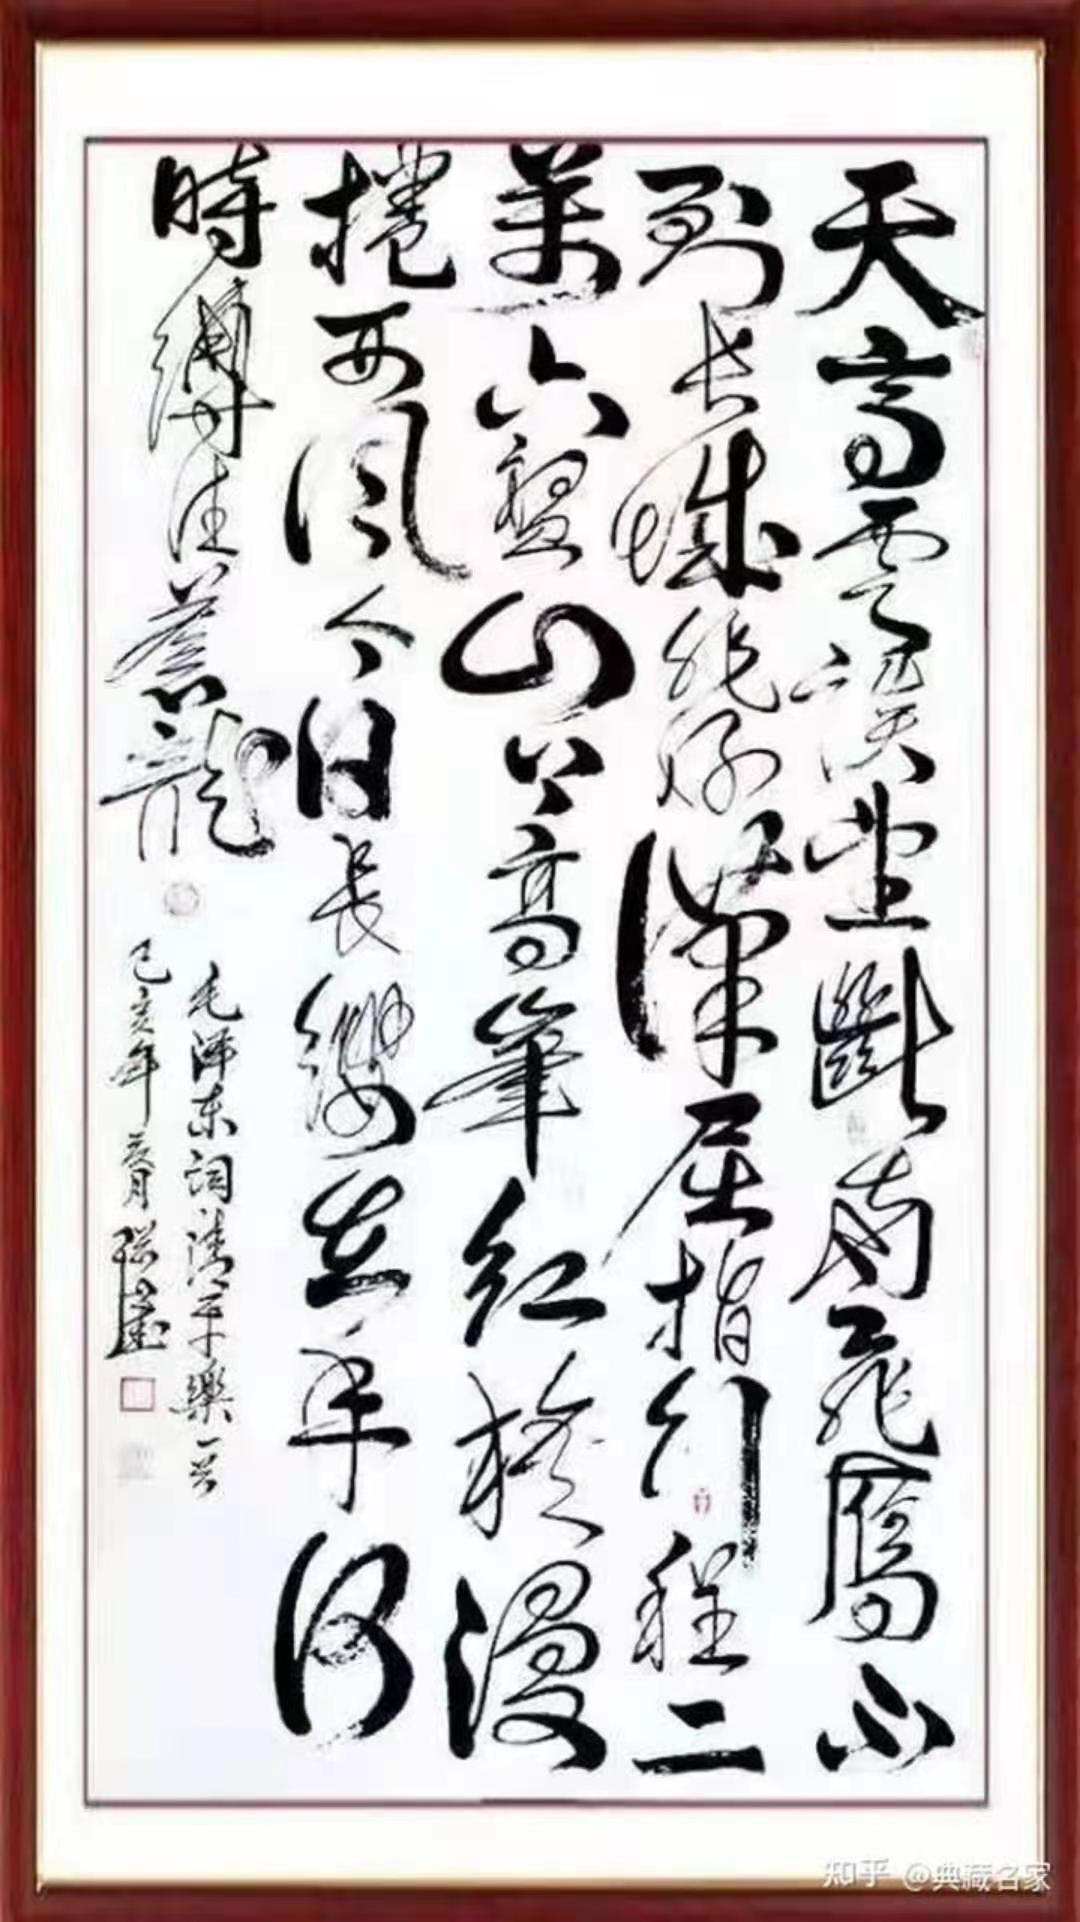 天高雲淡望斷南飛鴈不
到長城非好漢屈指行程二
萬六盤山上高峯紅旗漫
捲西風今日長纓在手何
時縛住蒼龍
毛澤东詞清平樂一首
己亥年
知乎 @典藏名家